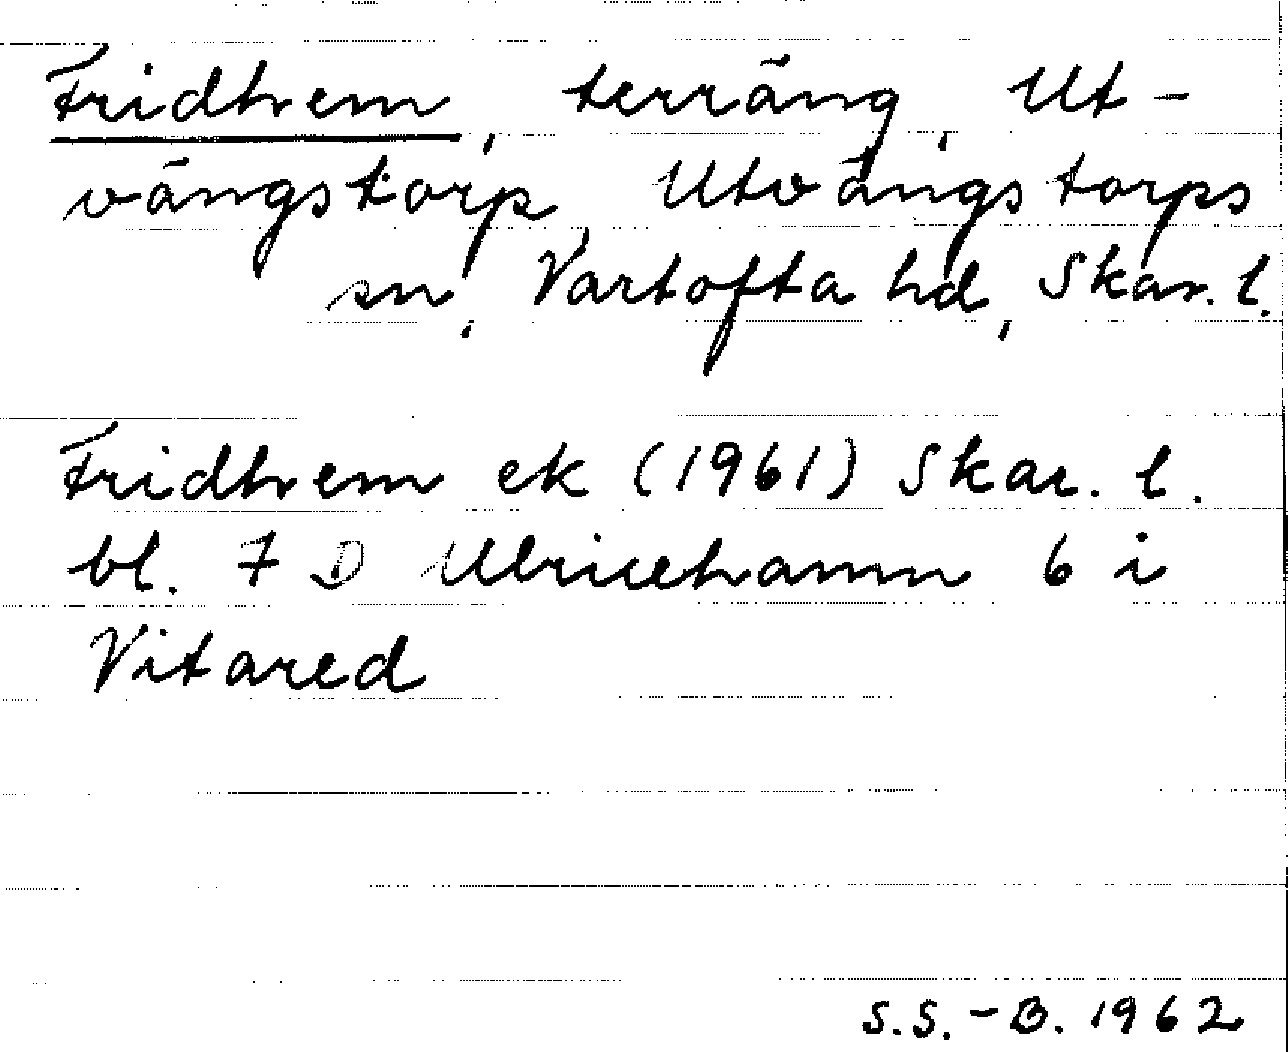 Fridhem, terräng, Ut-
vängstorp, Utvängstorps
sn, Vartofta hd, Skar. l.
Fridhem ek (1961) Skar. l.
bl. 7 D Ulricehamn 6 i
Vitared
S.S.-B. 1962